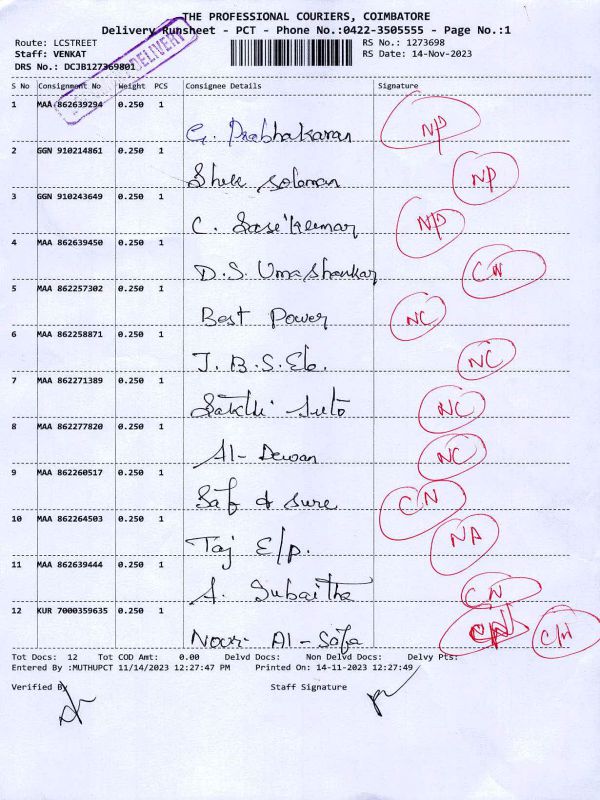 THE PROFESSIONAL COURIERS, COIMBATORE
Delivery Runsheet - PCT - Phone No.:0422-3505555 - Page No.:1
Route: LCSTREET RS No.: 1273698
Staff: VENKAT RS Date: 14-Nov-2023
DRS No.: DCJB127369801
DELIVERY
S No Consignment No Weight PCS Consignee Details Signature
1 MAA 862639294 0.250 1 G. Prabhakaran NP
2 GGN 910214861 0.250 1 Shek Soloman NP
3 GGN 910243649 0.250 1 C. Sasi'kumar NP
4 MAA 862639450 0.250 1 D.S. Umashankar CN
5 MAA 862257302 0.250 1 Best Power NC
6 MAA 862258871 0.250 1 J.B.S. Eb. NC
7 MAA 862271389 0.250 1 Sakthi Auto NC
8 MAA 862277820 0.250 1 Al-Dewan NC
9 MAA 862260517 0.250 1 Saf & Sure CN
10 MAA 862264503 0.250 1 Taj E/p. NA
11 MAA 862639444 0.250 1 A. Subaitha CN
12 KUR 7000359635 0.250 1 Noor Al-Sofa C/N
Tot Docs: 12 Tot COD Amt: 0.00 Delvd Docs: Non Delvd Docs: Delvy Pts:
Entered By :MUTHUPCT 11/14/2023 12:27:47 PM Printed On: 14-11-2023 12:27:49
Verified By Staff Signature